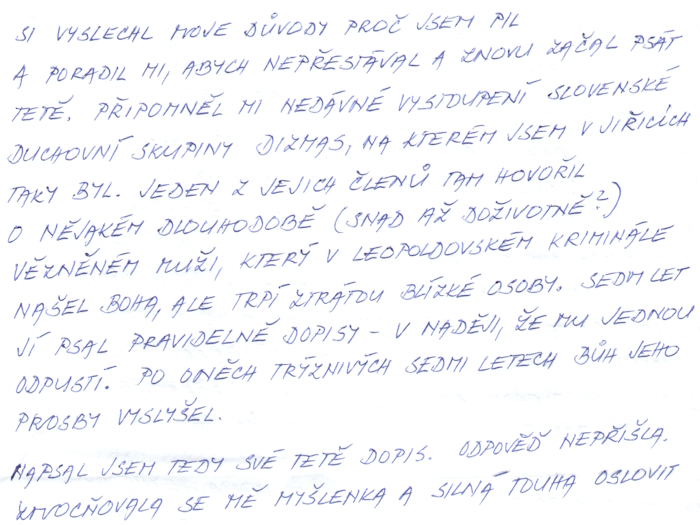 SI VYSLECHL MOJE DŮVODY PROČ JSEM PIL
A PORADIL MI, ABYCH NEPŘESTÁVAL A ZNOVU ZAČAL PSÁT
TETĚ. PŘIPOMNĚL MI NEDÁVNÉ VYSTOUPENÍ SLOVENSKÉ
DUCHOVNÍ SKUPINY DIZMAS, NA KTERÉM JSEM V JIŘICÍCH
TAKY BYL. JEDEN Z JEJICH ČLENŮ TAM HOVOŘIL
O NĚJAKÉM DLOUHODOBĚ (SNAD AŽ DOŽIVOTNĚ?)
VĚZNĚNÉM MUŽI, KTERÝ V LEOPOLDOVSKÉM KRIMINÁLE
NAŠEL BOHA, ALE TRPÍ ZTRÁTOU BLÍZKÉ OSOBY. SEDM LET
JÍ PSAL PRAVIDELNĚ DOPISY - V NADĚJI, ŽE MU JEDNOU
ODPUSTÍ. PO ONĚCH TRÝZNIVÝCH SEDMI LETECH BŮH JEHO
PROSBY VYSLYŠEL.
NAPSAL JSEM TEDY SVÉ TETĚ DOPIS. ODPOVĚĎ NEPŘIŠLA.
ZMOCŇOVALA SE MĚ MYŠLENKA A SILNÁ TOUHA OSLOVIT